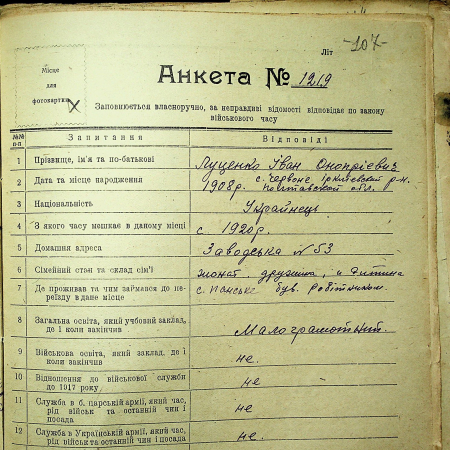 Літ
-107-
Місце
для
фотокартки
Анкета № 1219
Заповнюється власноручно, за неправдиві відомості відповідає по закону
військового часу
№№ п-п Запитання Відповіді
1 Прізвище, ім'я та по-батькові Луценко Іван Онопрієвич
2 Дата та місце народження 1908р. с. Червоне Іркліевский р-н.
Полтавской обл.
3 Національність Українець
4 З якого часу мешкає в даному місці с. 1920р.
5 Домашня адреса Заводська N 53
6 Сімейний стан та склад сім'ї жонат. дружина, и дитина
7 Де проживав та чим займався до пе-
реїзду в дане місце с. Панське був. робітником.
8 Загальна освіта, який учбовий заклад,
де і коли закінчив Малограмотний.
9 Військова освіта, який заклад, де і
коли закінчив не.
10 Відношення до військової служби
до 1917 року не
11 Служба в б. царській армії, який час,
рід військ та останній чин і
посада не
12 Служба в Українській армії, який час,
рід військ та останній чин і посада не.